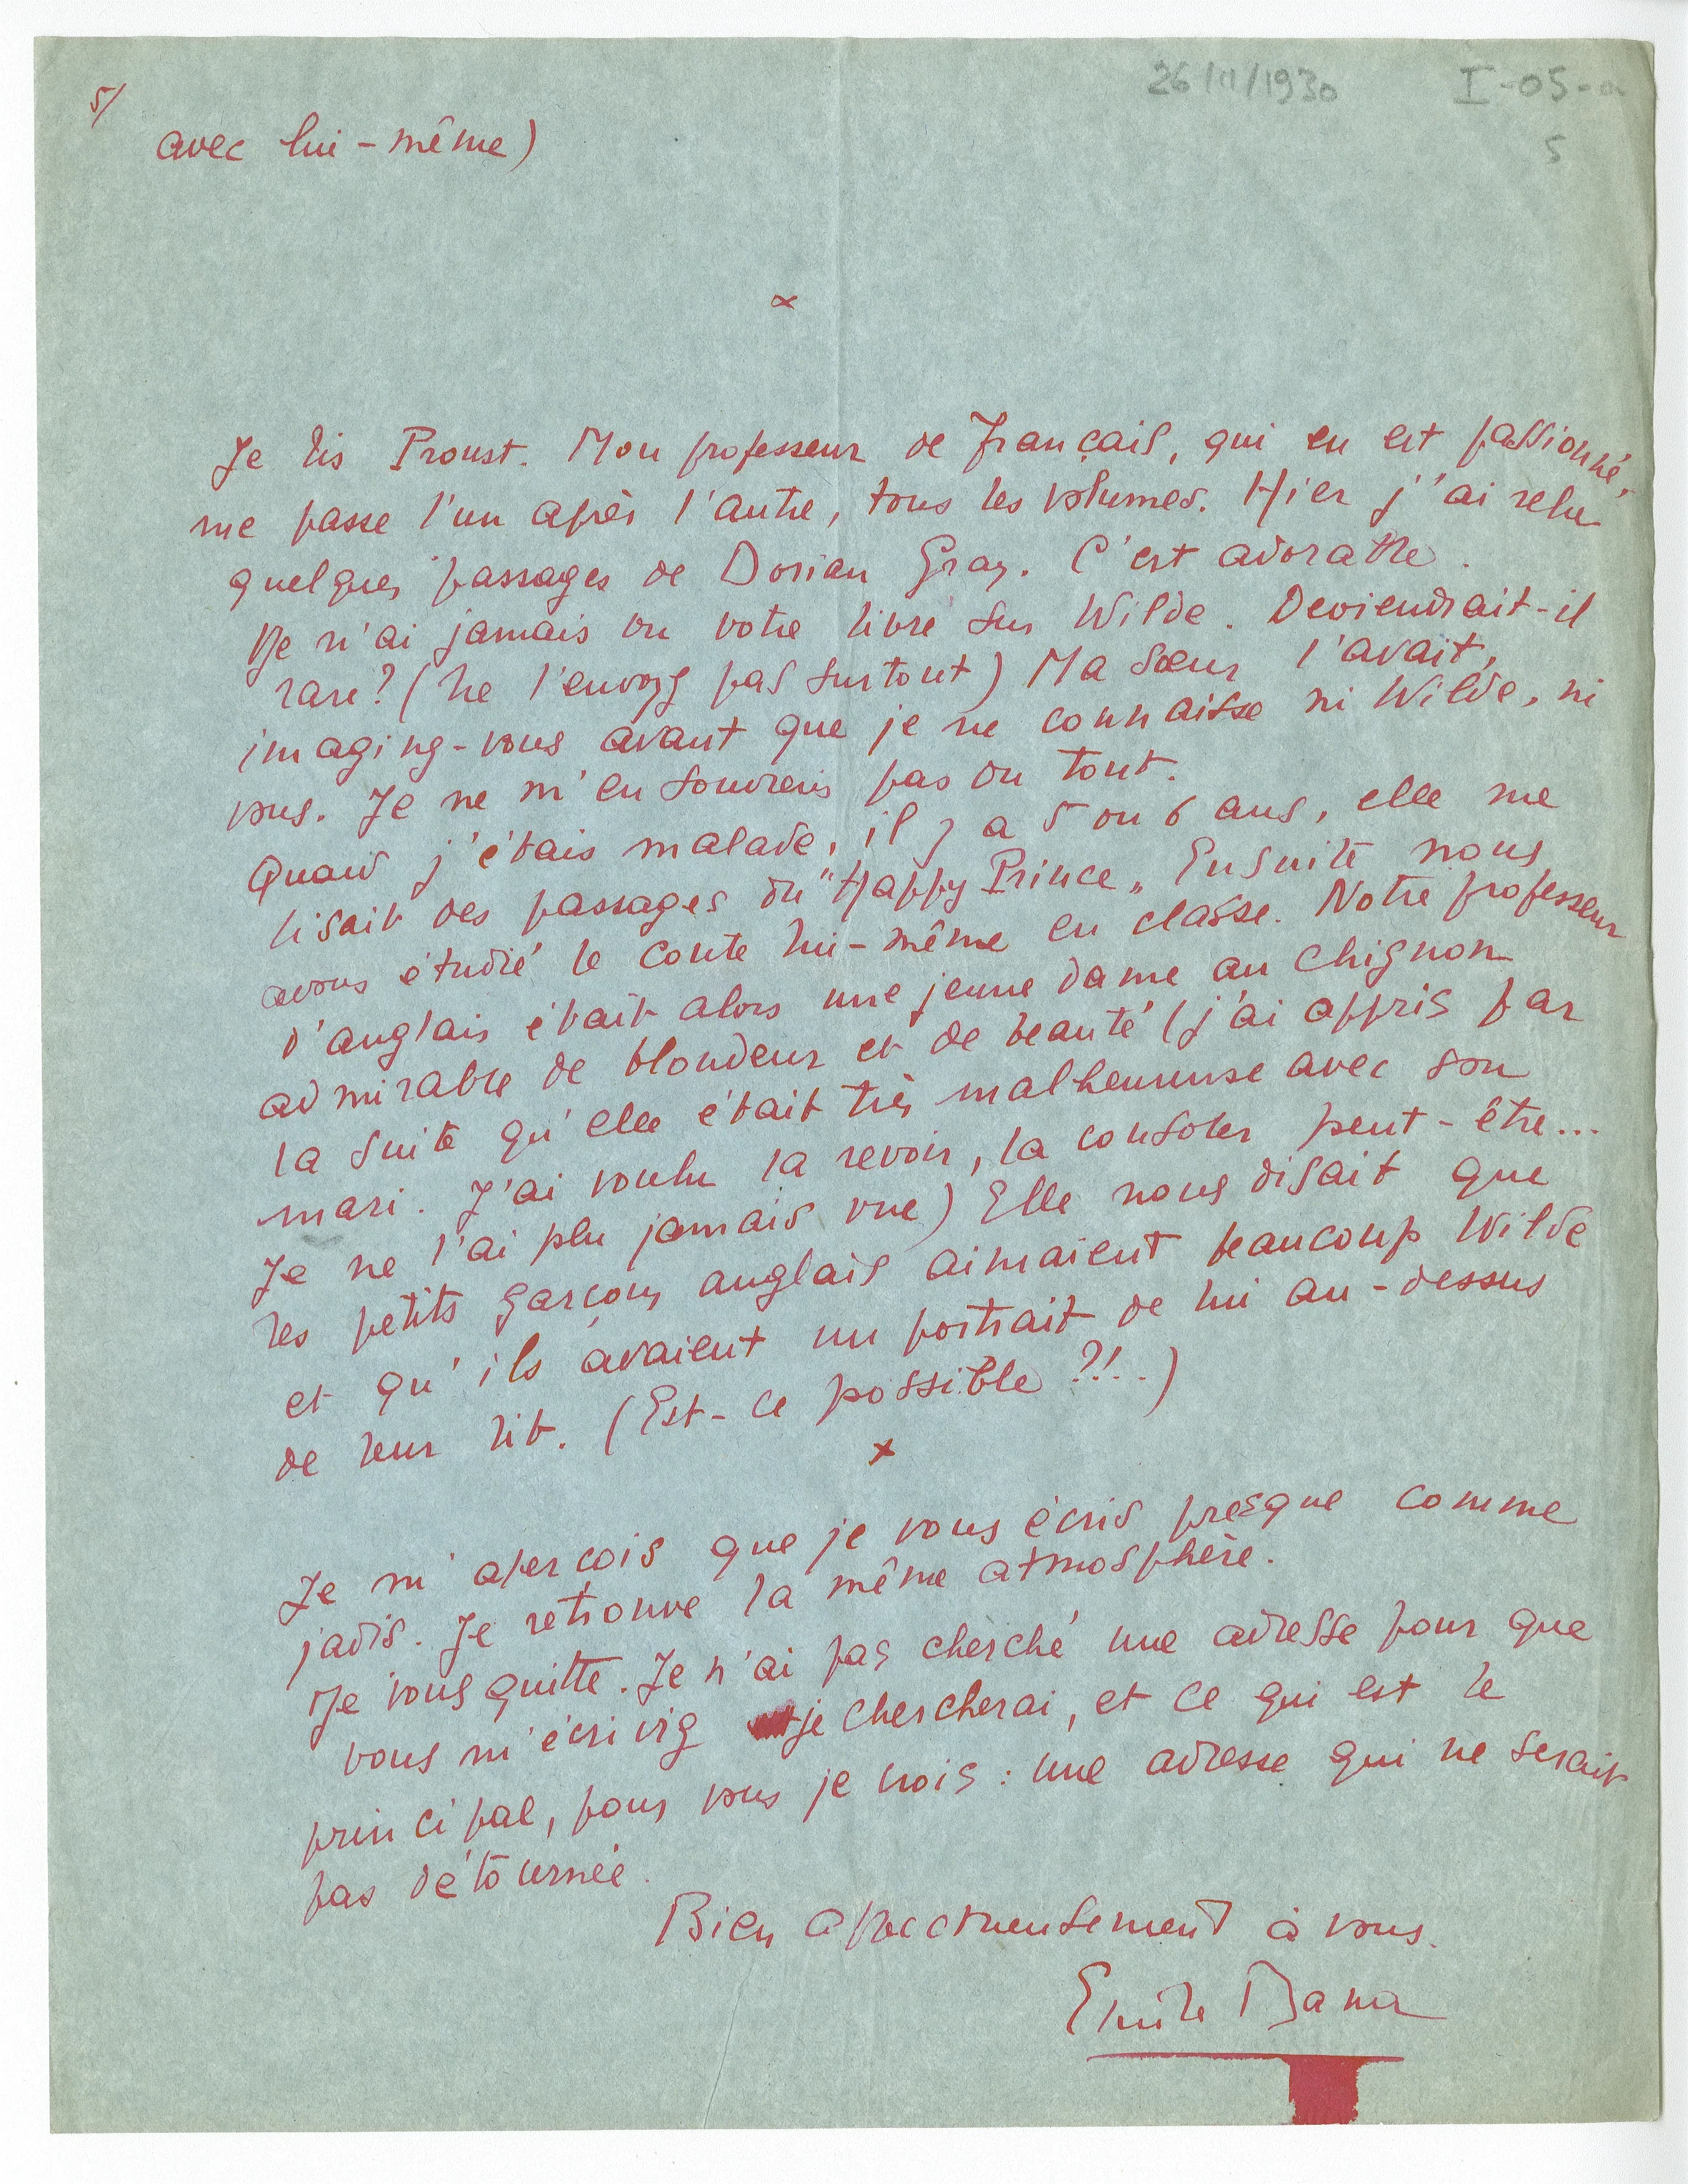 26/11/1930 I-05-a
5
5/
avec lui-même)
x
Je lis Proust. Mon professeur de français, qui en est passionné,
me passe l'un après l'autre, tous les volumes. Hier j'ai relu
quelques passages de Dorian Gray. C'est adorable.
Je n'ai jamais vu votre livre sur Wilde. Deviendrait-il
rare? (ne l'envoyez pas surtout) Ma sœur l'avait,
imaginez-vous avant que je ne connaisse ni Wilde, ni
vous. Je ne m'en souviens pas du tout.
Quand j'étais malade, il y a 5 ou 6 ans, elle me
lisait des passages du "Happy Prince" Ensuite nous
avons étudié le conte lui-même en classe. Notre professeur
d'anglais était alors une jeune dame au chignon
admirable de blondeur et de beauté (j'ai appris par
la suite qu'elle était très malheureuse avec son
mari. J'ai voulu la revoir, la consoler peut-être...
Je ne l'ai plu jamais vue) Elle nous disait que
les petits garçons anglais aimaient beaucoup Wilde
et qu'ils avaient un portrait de lui au-dessus
de leur lit. (Est-ce possible ?!..)
x
Je m'aperçois que je vous écris presque comme
jadis. Je retrouve la même atmosphère.
Je vous quitte. Je n'ai pas cherché une adresse pour que
vous m'écriviez je chercherai, et ce qui est le
principal, pour vous je crois : une adresse qui ne serait
pas détournée.
Bien affectueusement à vous.
Emile Bana